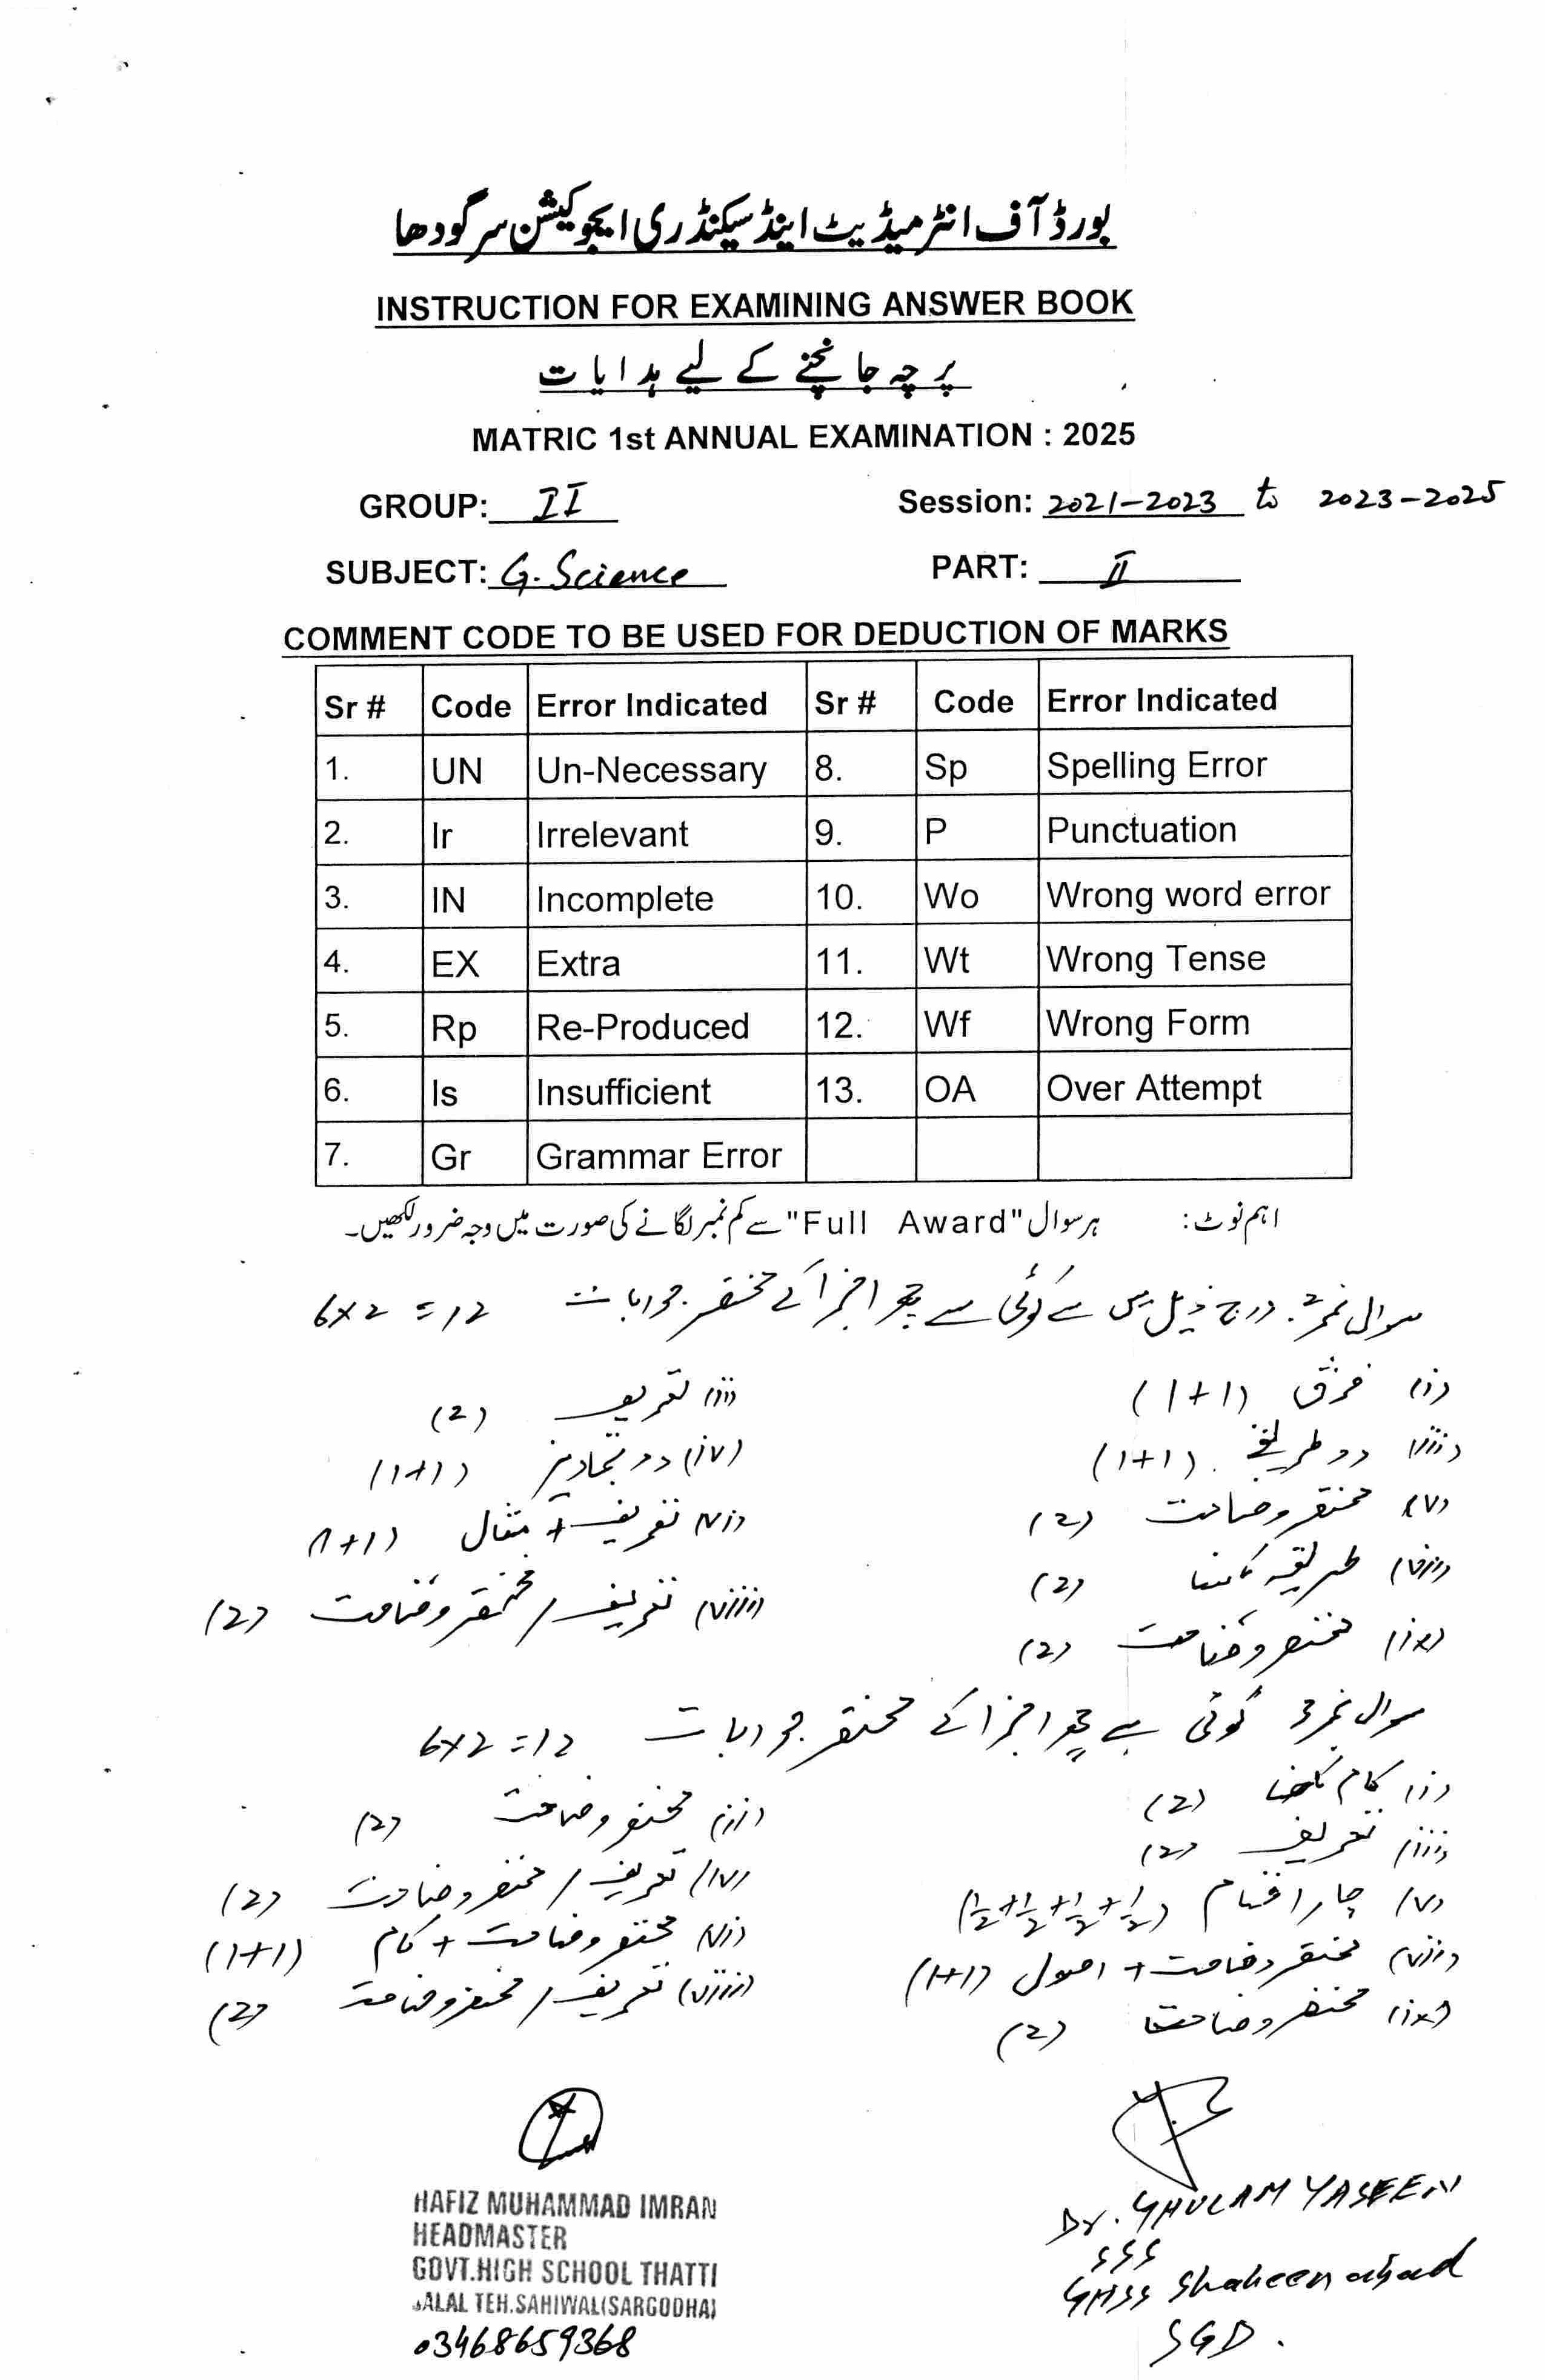 بورڈ آف انٹرمیڈیٹ اینڈ سیکنڈری ایجوکیشن سرگودھا
INSTRUCTION FOR EXAMINING ANSWER BOOK
پرچہ جانچنے کے لیے ہدایات
MATRIC 1st ANNUAL EXAMINATION : 2025
GROUP: II Session: 2021-2023 to 2023-2025
SUBJECT: G. Science PART: II
COMMENT CODE TO BE USED FOR DEDUCTION OF MARKS
Sr # Code Error Indicated Sr # Code Error Indicated
1. UN Un-Necessary 8. Sp Spelling Error
2. Ir Irrelevant 9. P Punctuation
3. IN Incomplete 10. Wo Wrong word error
4. EX Extra 11. Wt Wrong Tense
5. Rp Re-Produced 12. Wf Wrong Form
6. Is Insufficient 13. OA Over Attempt
7. Gr Grammar Error
اہم نوٹ: ہر سوال "Full Award" سے کم نمبر لگانے کی صورت میں وجہ ضرور لکھیں۔
سوال نمبر 2. درج ذیل میں سے کوئی سے چھ اجزا کے مختصر جوابات 6×2=12
(i) فرق (1+1) (ii) تعریف (2)
(iii) دو طریقے (1+1) (iv) دو تجاویز (1+1)
(v) مختصر وضاحت (2) (vi) تعریف + مثال (1+1)
(vii) طریقہ لکھنا (2) (viii) تعریف / مختصر وضاحت (2)
(ix) مختصر وضاحت (2)
سوال نمبر 3 کوئی سے چھ اجزا کے مختصر جوابات 6×2=12
(i) کام لکھنا (2) (ii) مختصر وضاحت (2)
(iii) تعریف (2) (iv) تعریف / مختصر وضاحت (2)
(v) چار اقسام (½+½+½+½) (vi) مختصر وضاحت + کام (1+1)
(vii) مختصر وضاحت + اصول (1+1) (viii) تعریف / مختصر وضاحت (2)
(ix) مختصر وضاحت (2)
HAFIZ MUHAMMAD IMRAN
HEADMASTER
GOVT.HIGH SCHOOL THATTI
JALAL TEH.SAHIWAL(SARGODHA)
03468659368
Dr. GHULAM YASEEN
SSS
GHSS Shaheenabad
SGD.